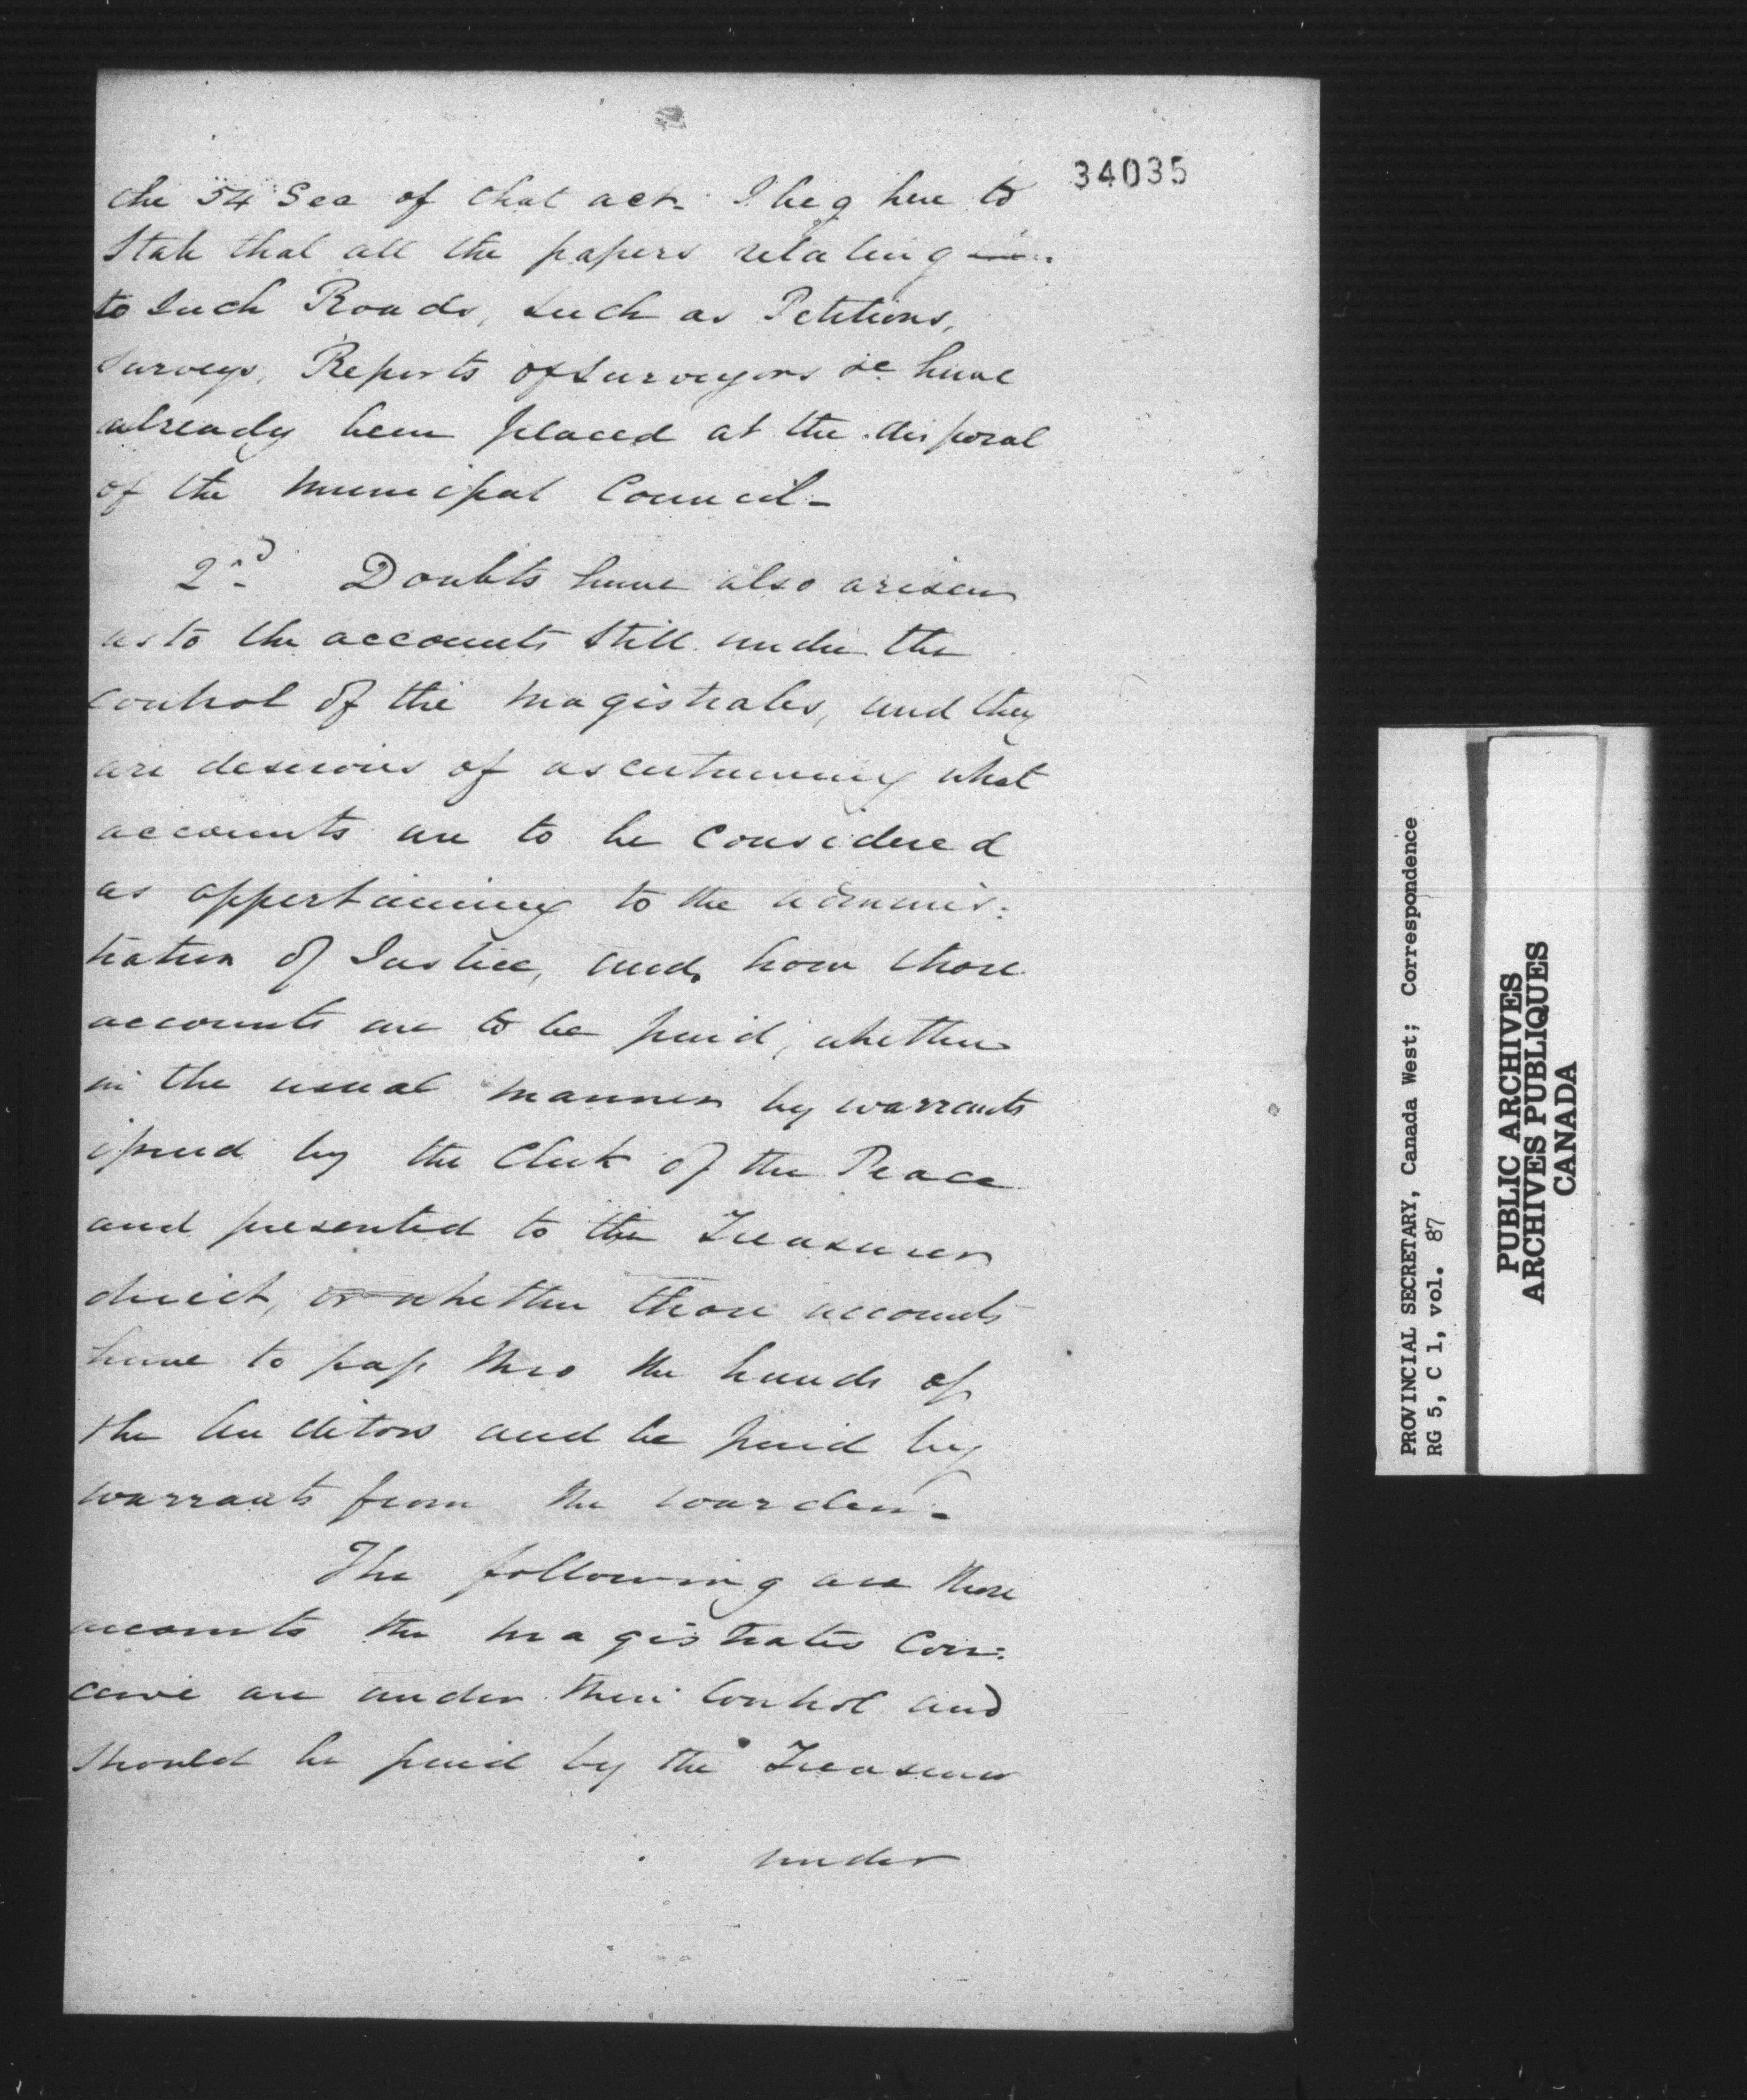 34035
the 54 Sec of that act. I beg here to
State that all the papers relating
to such Roads, such as Petitions,
Surveys, Reports of Surveyors &c have
already been placed at the disposal
of the Municipal Council-
2nd Doubts have also arisen
as to the accounts still under the
control of the Magistrates, and they
are desirous of ascertaining what
accounts are to be considered
as appertaining to the adminis:
tration of Justice, and how those
accounts are to be paid, whether
in the usual manner by warrants
issued by the Clerk of the Peace
and presented to the Treasurer
direct, or whether those accounts
have to pass thro the hands of
the Auditors and be paid by
warrants from the Warden-
The following are those
accounts the Magistrates Con:
ceive are under their Control and
Should be paid by the Treasurer
under
PROVINCIAL SECRETARY, Canada West; Correspondence
RG 5, C 1, vol. 87
PUBLIC ARCHIVES
ARCHIVES PUBLIQUES
CANADA